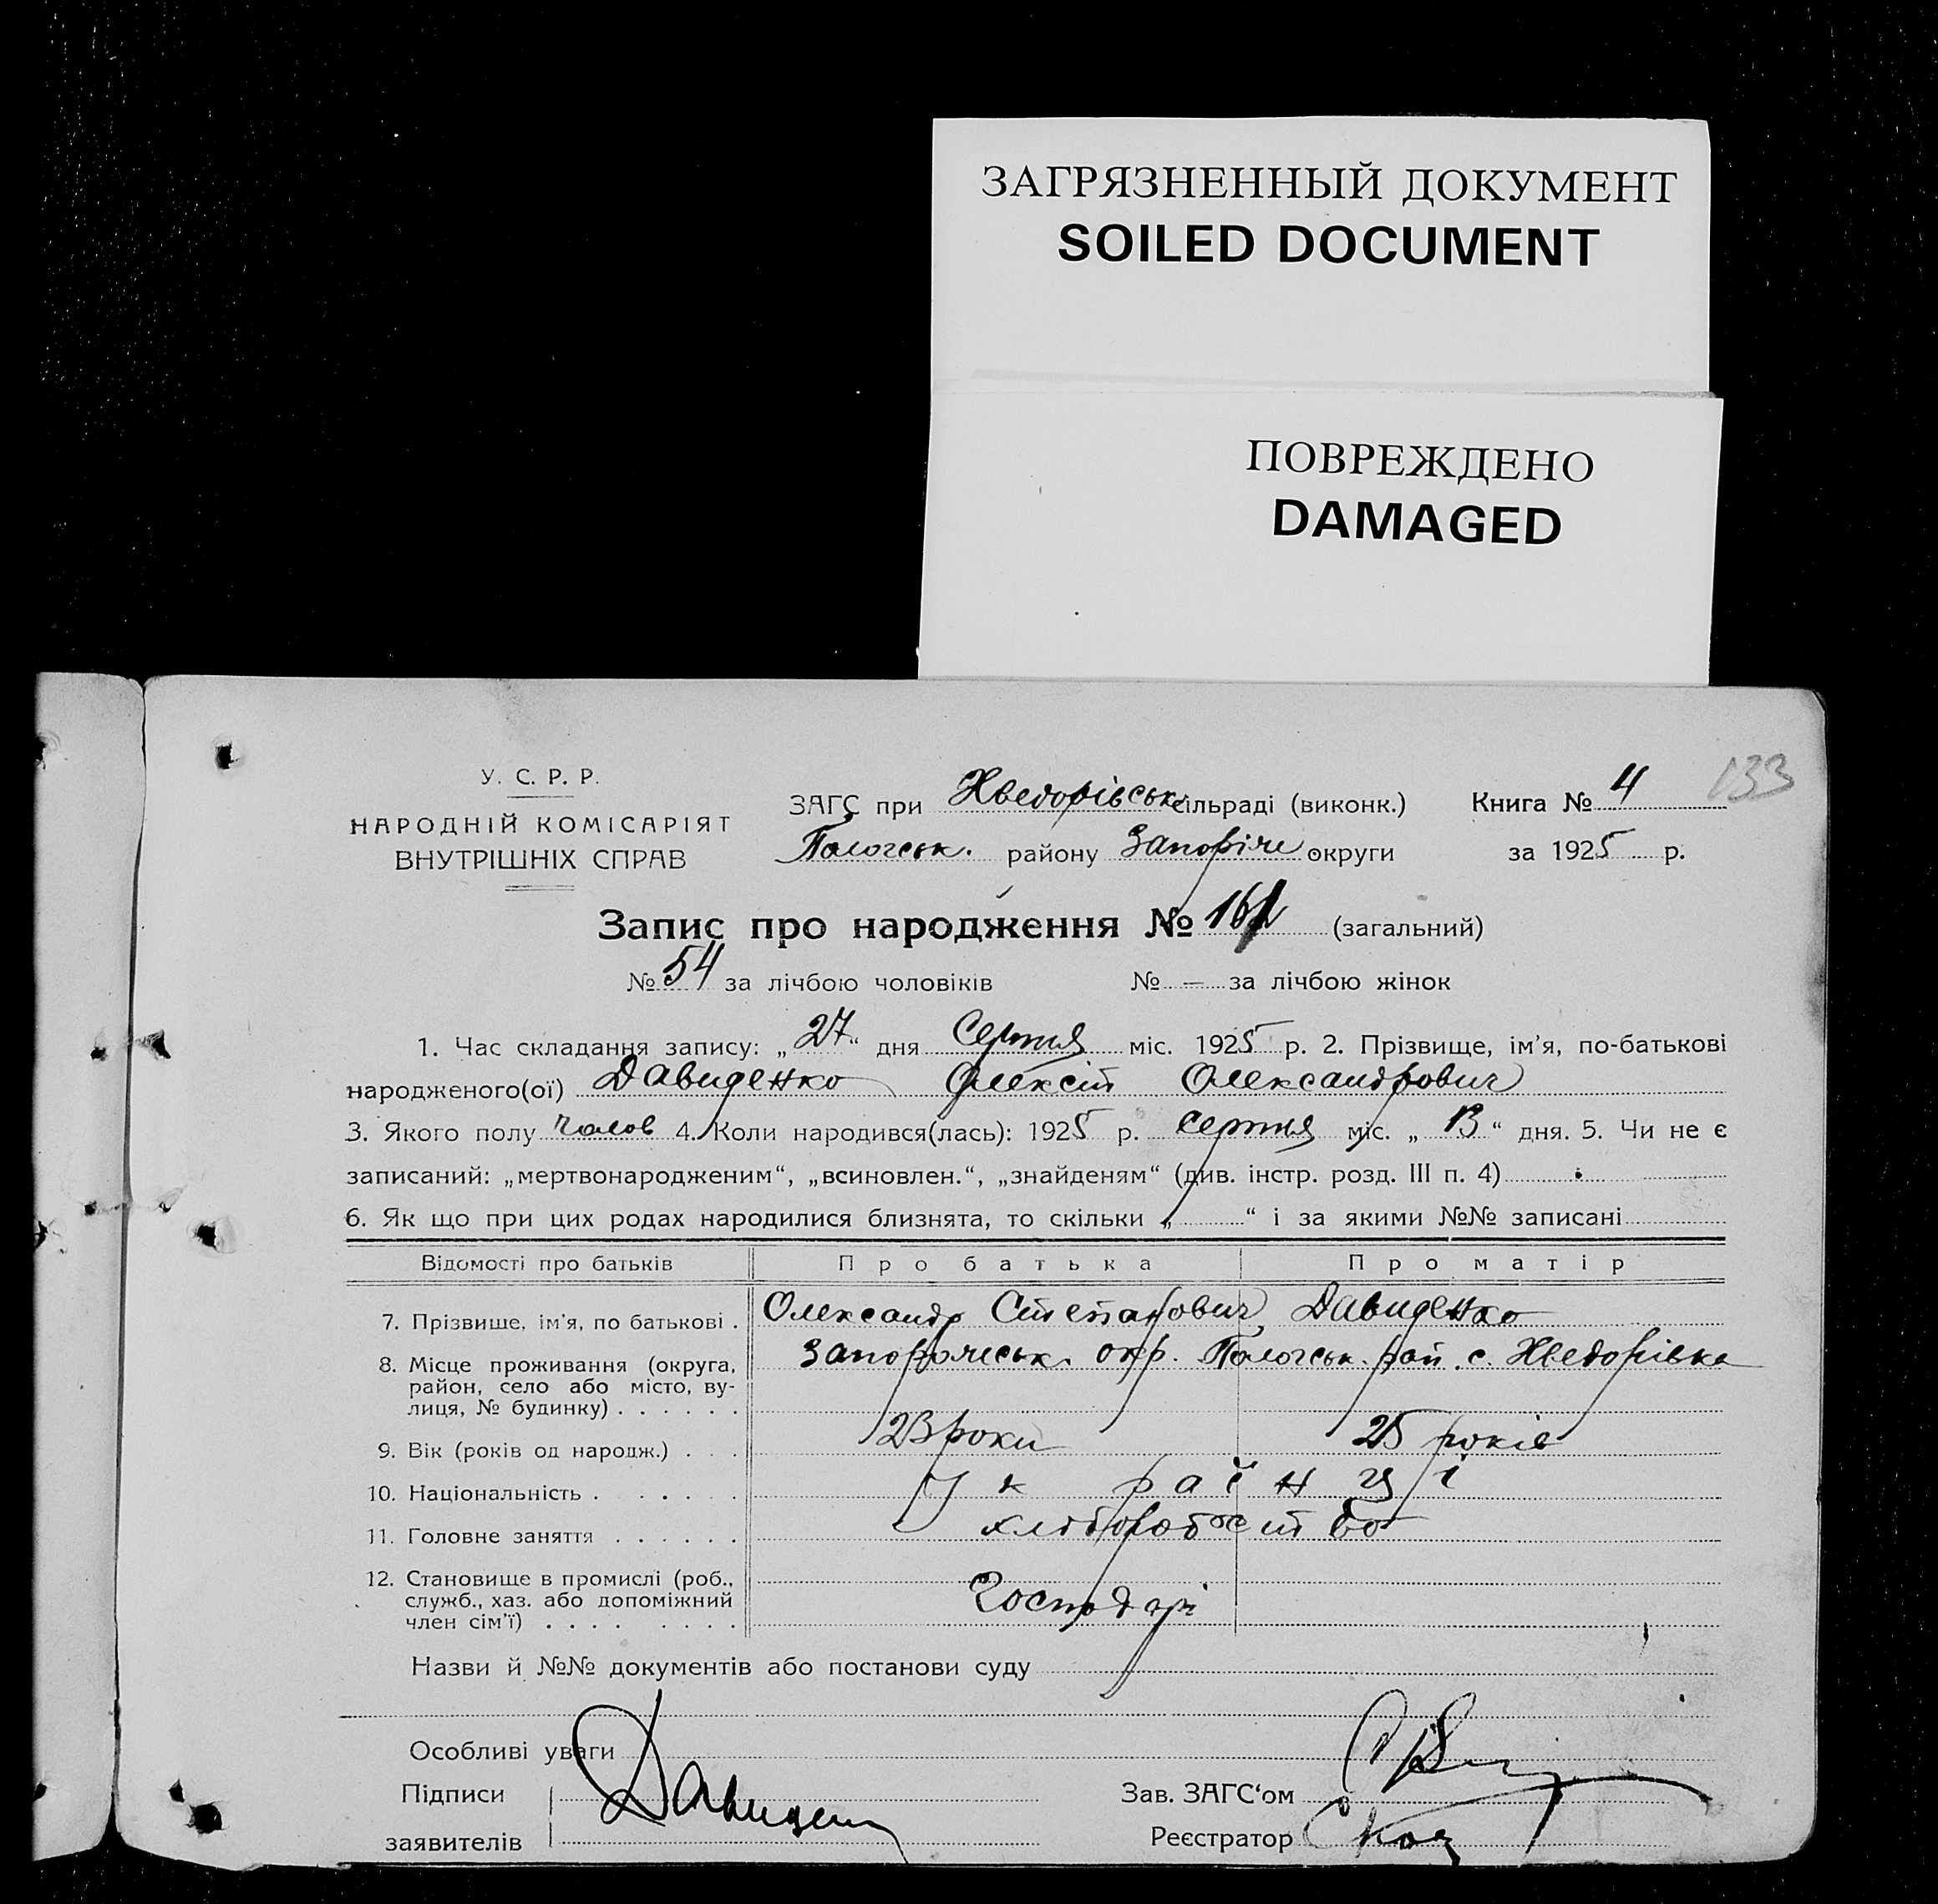 ЗАГРЯЗНЕННЫЙ ДОКУМЕНТ
SOILED DOCUMENT
ПОВРЕЖДЕНО
DAMAGED
133
У. С. Р. Р.
НАРОДНІЙ КОМІСАРІЯТ
ВНУТРІШНІХ СПРАВ
ЗАГС при Хведорівськ. сільраді (виконк.) Книга № 4
Пологськ. району Запоріж округи за 1925 р.
Запис про народження № (загальний)
№ 54 за лічбою чоловіків № — за лічбою жінок
1. Час складання запису: „27“ дня Серпня міс. 1925 р. 2. Прізвище, ім’я, по-батькові
народженого(ої) Давиденко Олексій Олександрович
3. Якого полу чолов 4. Коли народився(лась): 1925 р. серпня міс. „13“ дня. 5. Чи не є
записаний: „мертвонародженим“, „всиновлен.“, „знайденям“ (див. інстр. розд. III п. 4)
6. Як що при цих родах народилися близнята, то скільки „ “ і за якими №№ записані
Відомості про батьків Про батька Про матір
7. Прізвише, ім’я, по батькові . Олександр Степанович Давиденко
8. Місце проживання (округа, Запоріжськ. окр. Пологськ. рай. с. Хведорівка
район, село або місто, ву-
лиця, № будинку) . . . . . .
9. Вік (років од народж.) . . . 23 роки 25 років
10. Національність . . . . . Українці
11. Головне заняття . . . . . . хліборобство
12. Становище в промислі (роб.,
служб., хаз. або допоміжний Господарі
член сім’ї) . . . . . . . .
Назви й №№ документів або постанови суду
Особливі уваги
Підписи Давиден Зав. ЗАГС‘ом
заявителів Реєстратор